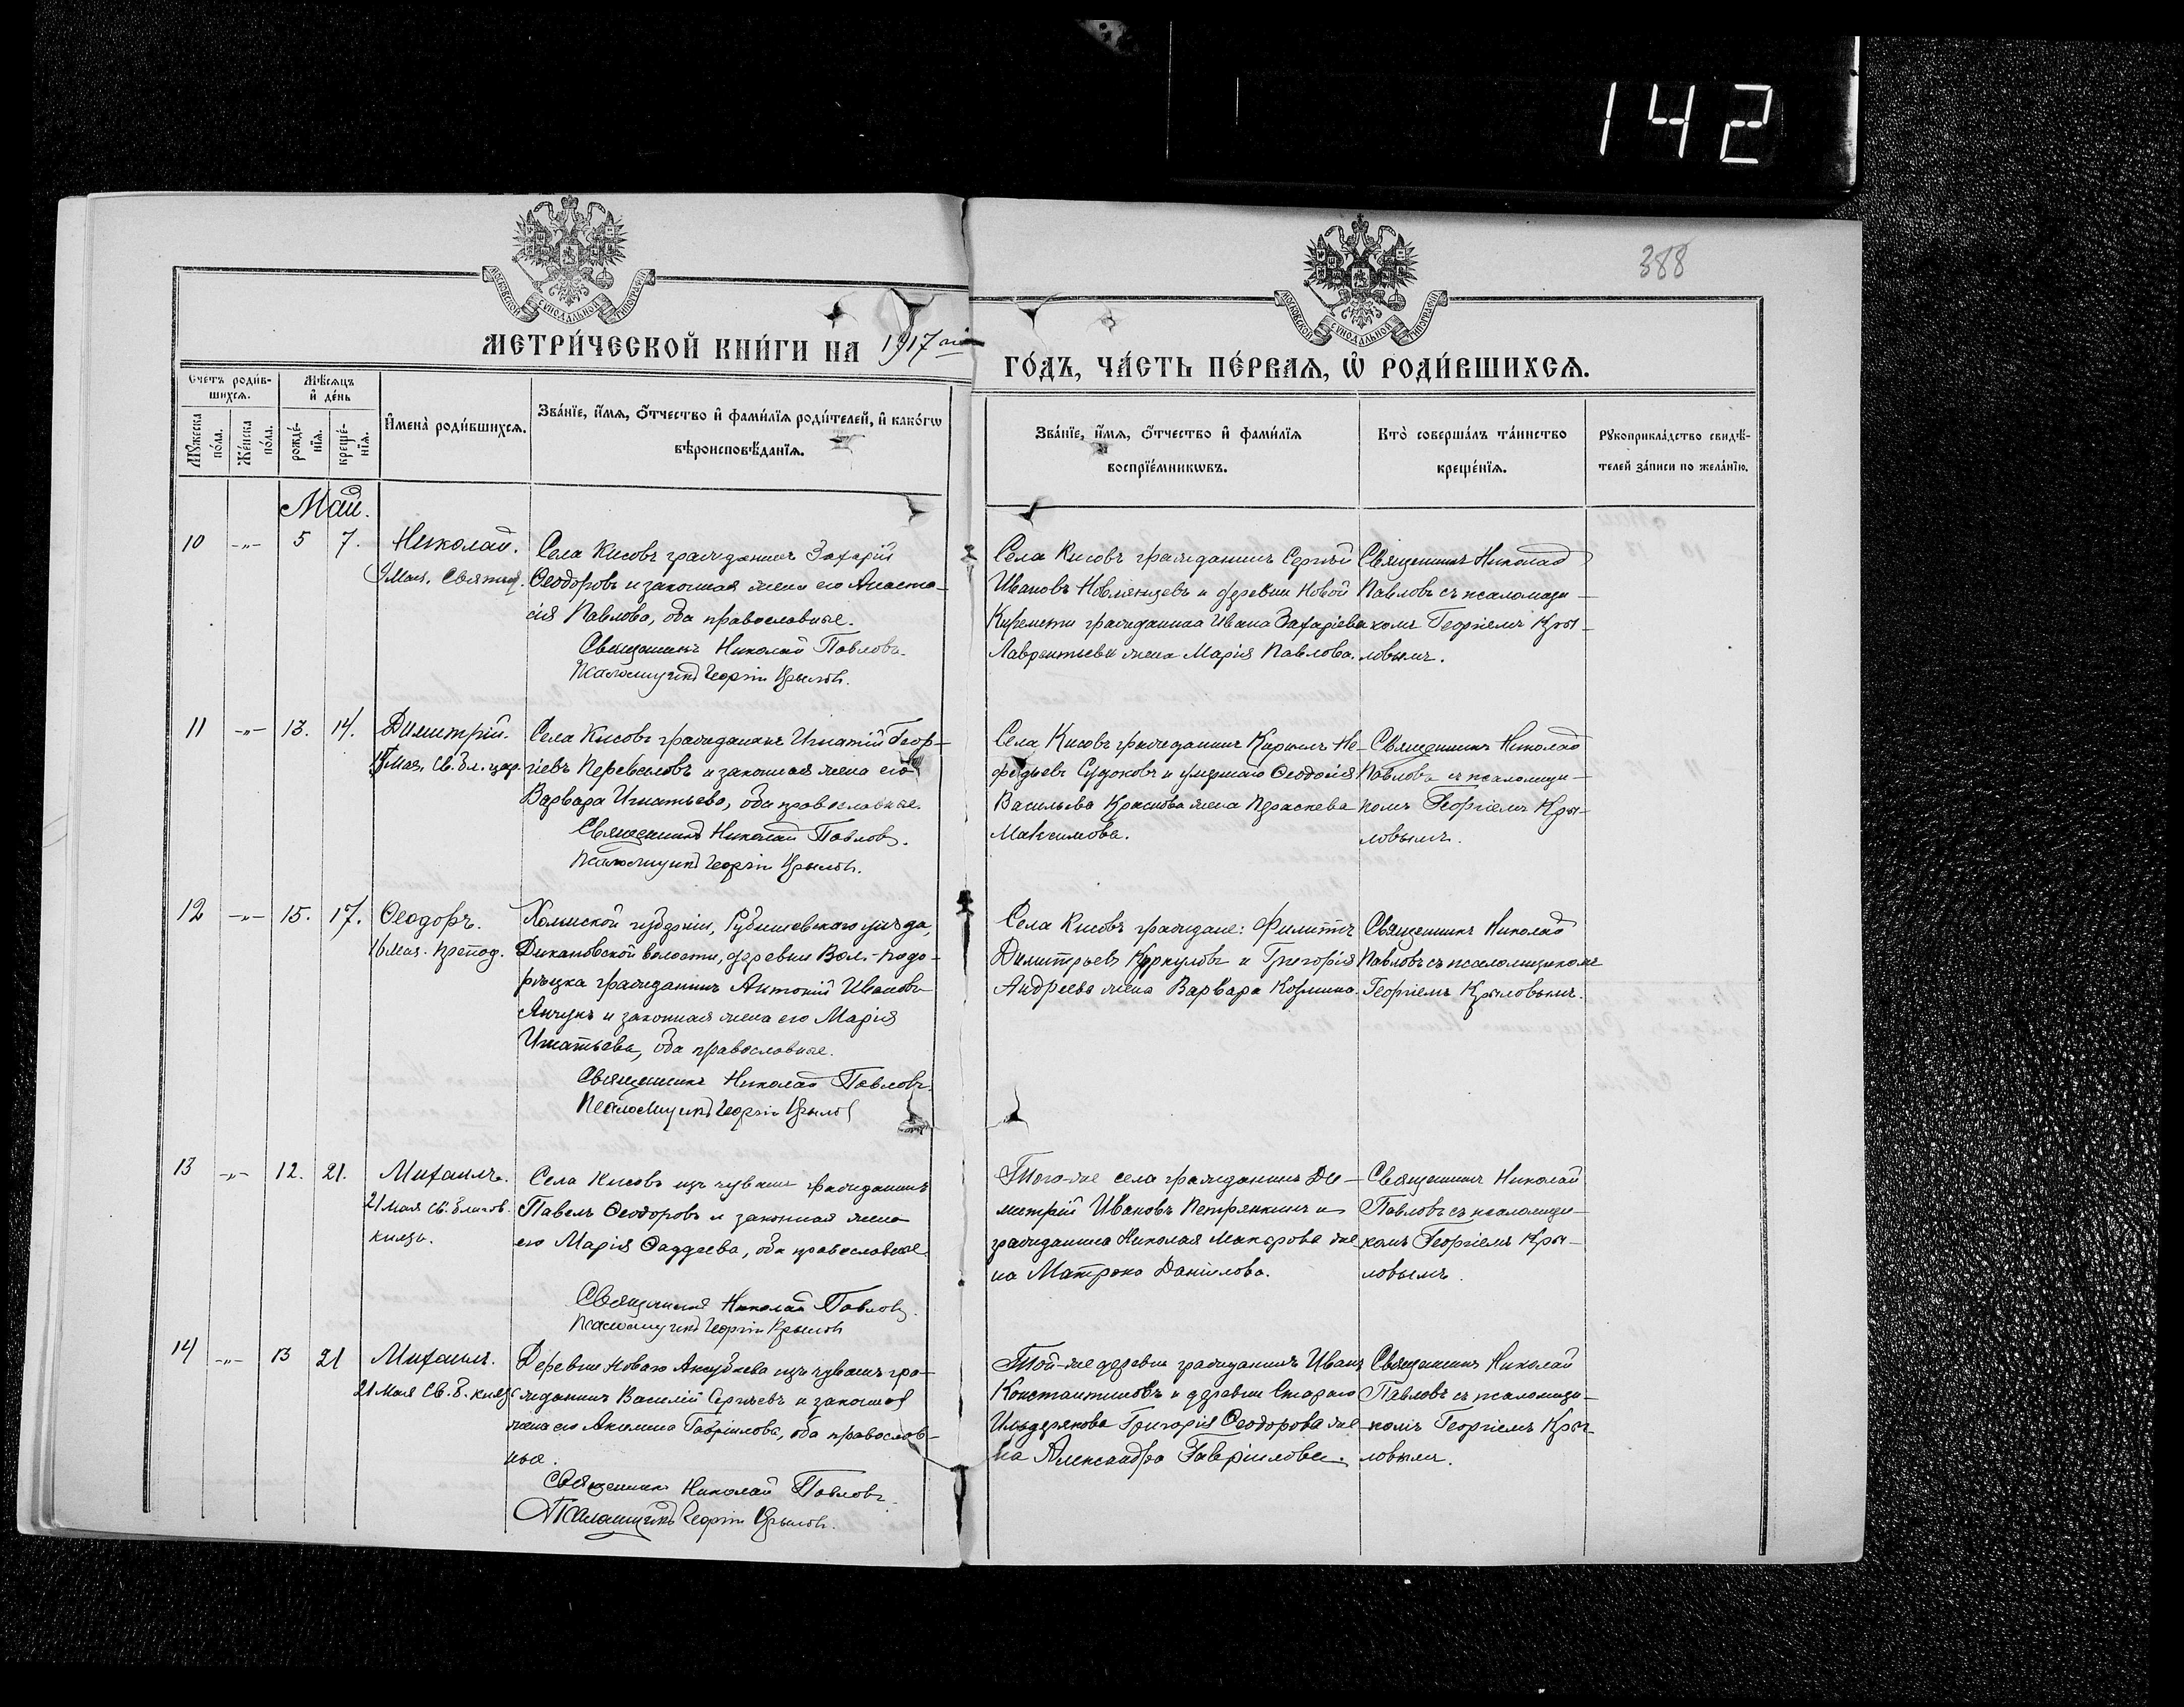 142
388
МОСКОВСКОЙ СѴНОДАЛЬНОЙ ТИПОГРАФІИ
МОСКОВСКОЙ СѴНОДАЛЬНОЙ ТИПОГРАФІИ
МЕТРИ́ЧЕСКОЙ КНИ́ГИ НА 1917 ГО́ДЪ, ЧА́СТЬ ПЕ́РВАѦ, Ѡ РОДИ́ВШИХСѦ.
Счетъ роди́в-
шихсѧ.
Мѣ́сѧцъ
и҆ де́нь
Мꙋжеска
по́ла.
Же́нска
по́ла.
рожде́-
нїѧ.
креще́-
нїѧ.
И҆мена̀ роди́вшихсѧ.
Зва́нїе, и҆́мѧ, ѻ҆́тчество и҆ фами́лїѧ роди́телей, и҆ како́гѡ
вѣроисповѣ́данїѧ.
Зва́нїе, и҆́мѧ, ѻ҆́тчество и҆ фами́лїѧ
воспрїе́мникѡвъ.
Кто̀ соверша́лъ та́инство
креще́нїѧ.
Рꙋкоприкла́дство свидѣ́-
телей за́писи по жела́нїю.
Май.
10 -„- 5 7.
Николай.
9 Мая. Святит.
Села Кисовъ гражданинъ Захарій
Ѳеодоровъ и законная жена его Анаста-
сія Павлова, оба православные.
Священникъ Николай Павловъ.
Псаломщикъ Георгій Крыловъ.
Села Кисовъ гражданинъ Сергѣй
Ивановъ Новлянцевъ и деревни Новой
Киремети гражданина Ивана Захаріева
Лаврентьева жена Марія Павлова.
Священникъ Николай
Павловъ съ псаломщи-
комъ Георгіемъ Кры-
ловымъ.
11 -„- 13. 14.
Димитрій.
15 Мая, Св. бл. цар.
Села Кисовъ гражданинъ Игнатій Геор-
гіевъ Перевѣловъ и законная жена его
Варвара Игнатьева, оба православные.
Священникъ Николай Павловъ.
Псаломщикъ Георгій Крыловъ.
Села Кисовъ гражданинъ Кириллъ Не-
федьевъ Судоковъ и умершаго Ѳеодосія
Васильева Краснова жена Параскева
Максимова.
Священникъ Николай
Павловъ съ псаломщи-
комъ Георгіемъ Кры-
ловымъ.
12 -„- 15. 17.
Ѳеодоръ.
16 мая. препод.
Холмской губерніи, Грубешовскаго уѣзда,
Дикановской волости, деревни Вол.-Подо-
рѣцка гражданинъ Антоній Ивановъ
Янчукъ и законная жена его Марія
Игнатьева, оба православные.
Священникъ Николай Павловъ.
Псаломщикъ Георгій Крыловъ
Села Кисовъ граждане: Филиппъ
Димитріевъ Куркуловъ и Григорія
Андреева жена Варвара Козмина.
Священникъ Николай
Павловъ съ псаломщикомъ
Георгіемъ Крыловымъ.
13 -„- 12. 21.
Михаилъ.
21 мая св. благов.
князь.
Села Кисовъ изъ чувашъ гражданинъ
Павелъ Ѳеодоровъ и законная жена
его Марія Ѳаддеева, оба православные.
Священникъ Николай Павловъ.
Псаломщикъ Георгій Крыловъ
Того-же села гражданинъ Ди-
митрій Ивановъ Петрянкинъ и
гражданина Николая Макарова же-
на Матрона Даніилова.
Священникъ Николай
Павловъ съ псаломщи-
комъ Георгіемъ Кры-
ловымъ.
14 -„- 13 21
Михаилъ.
21 мая Св. б. князь
Деревни Новаго Ахпубаева изъ чувашъ гра-
жданинъ Василій Сергѣевъ и законная
жена его Акилина Гавріилова, оба православ-
ные.
Священникъ Николай Павловъ.
Псаломщикъ Георгій Крыловъ.
Той-же деревни гражданинъ Иванъ
Константиновъ и деревни Стараго
Ильдерякова Григорія Ѳеодорова же-
на Александра Гавріилова.
Священникъ Николай
Павловъ съ псаломщи-
комъ Георгіемъ Кры-
ловымъ.